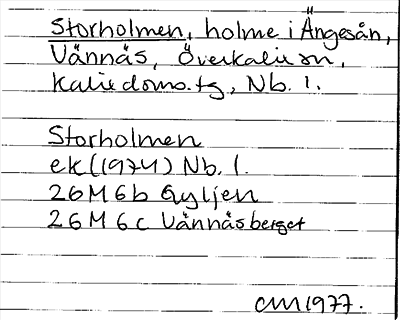 Storholmen, holme i Ängesån,
Vännäs, Överkalix sn,
Kalix doms. tg, Nb. l.
Storholmen
ek (1974) Nb. l.
26M 6b Gyljen
26M 6c Vännäsberget
CM 1977.